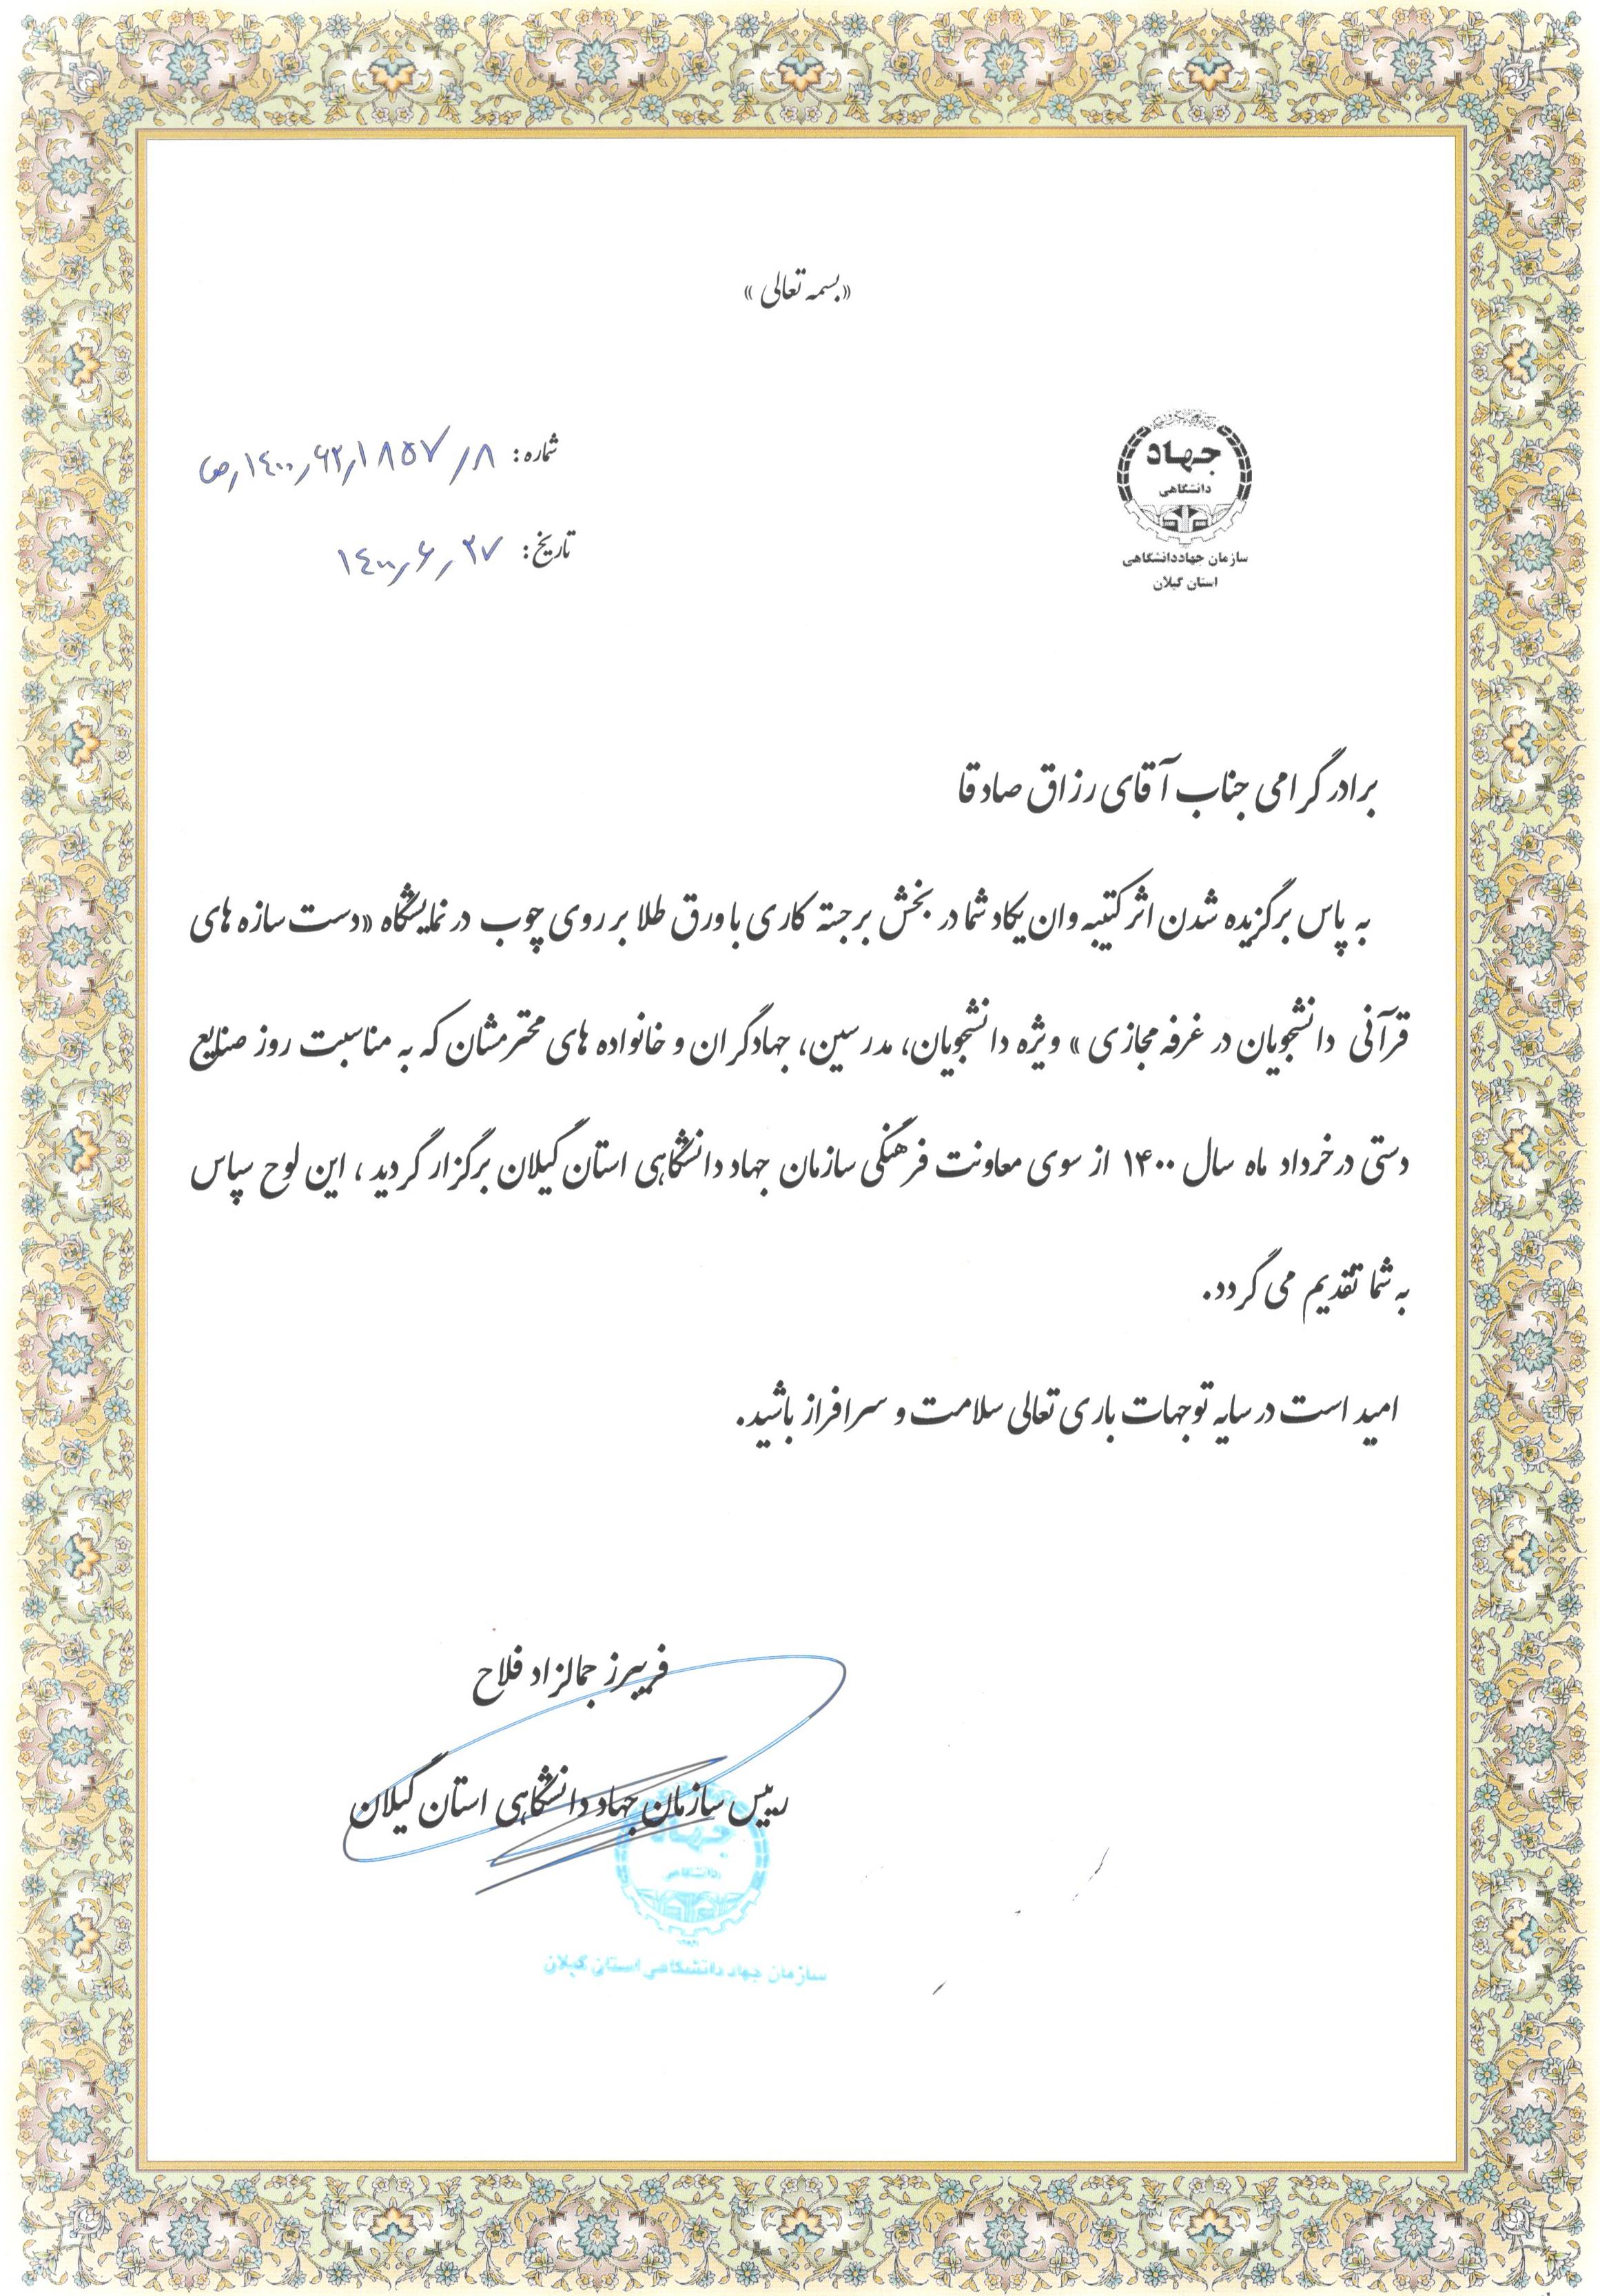 «بسمه تعالی»
جهاد
دانشگاهی
سازمان جهاددانشگاهی
استان گیلان
شماره: ۱۴۰۰٫۶۲٫۱۸۵۷٫۸٫ص
تاریخ: ۱۴۰۰٫۶٫۲۷
برادر گرامی جناب آقای رزاق صادقا
به پاس برگزیده شدن اثر کتیبه وان یکاد شما در بخش برجسته کاری با ورق طلا بر روی چوب در نمایشگاه «دست سازه های
قرآنی دانشجویان در غرفه مجازی» ویژه دانشجویان، مدرسین، جهادگران و خانواده های محترمشان که به مناسبت روز صنایع
دستی در خرداد ماه سال ۱۴۰۰ از سوی معاونت فرهنگی سازمان جهاد دانشگاهی استان گیلان برگزار گردید، این لوح سپاس
به شما تقدیم می گردد.
امید است در سایه توجهات باری تعالی سلامت و سرافراز باشید.
فریبرز جمالزاد فلاح
رییس سازمان جهاد دانشگاهی استان گیلان
جهاد
دانشگاهی
سازمان جهاد دانشگاهی استان گیلان